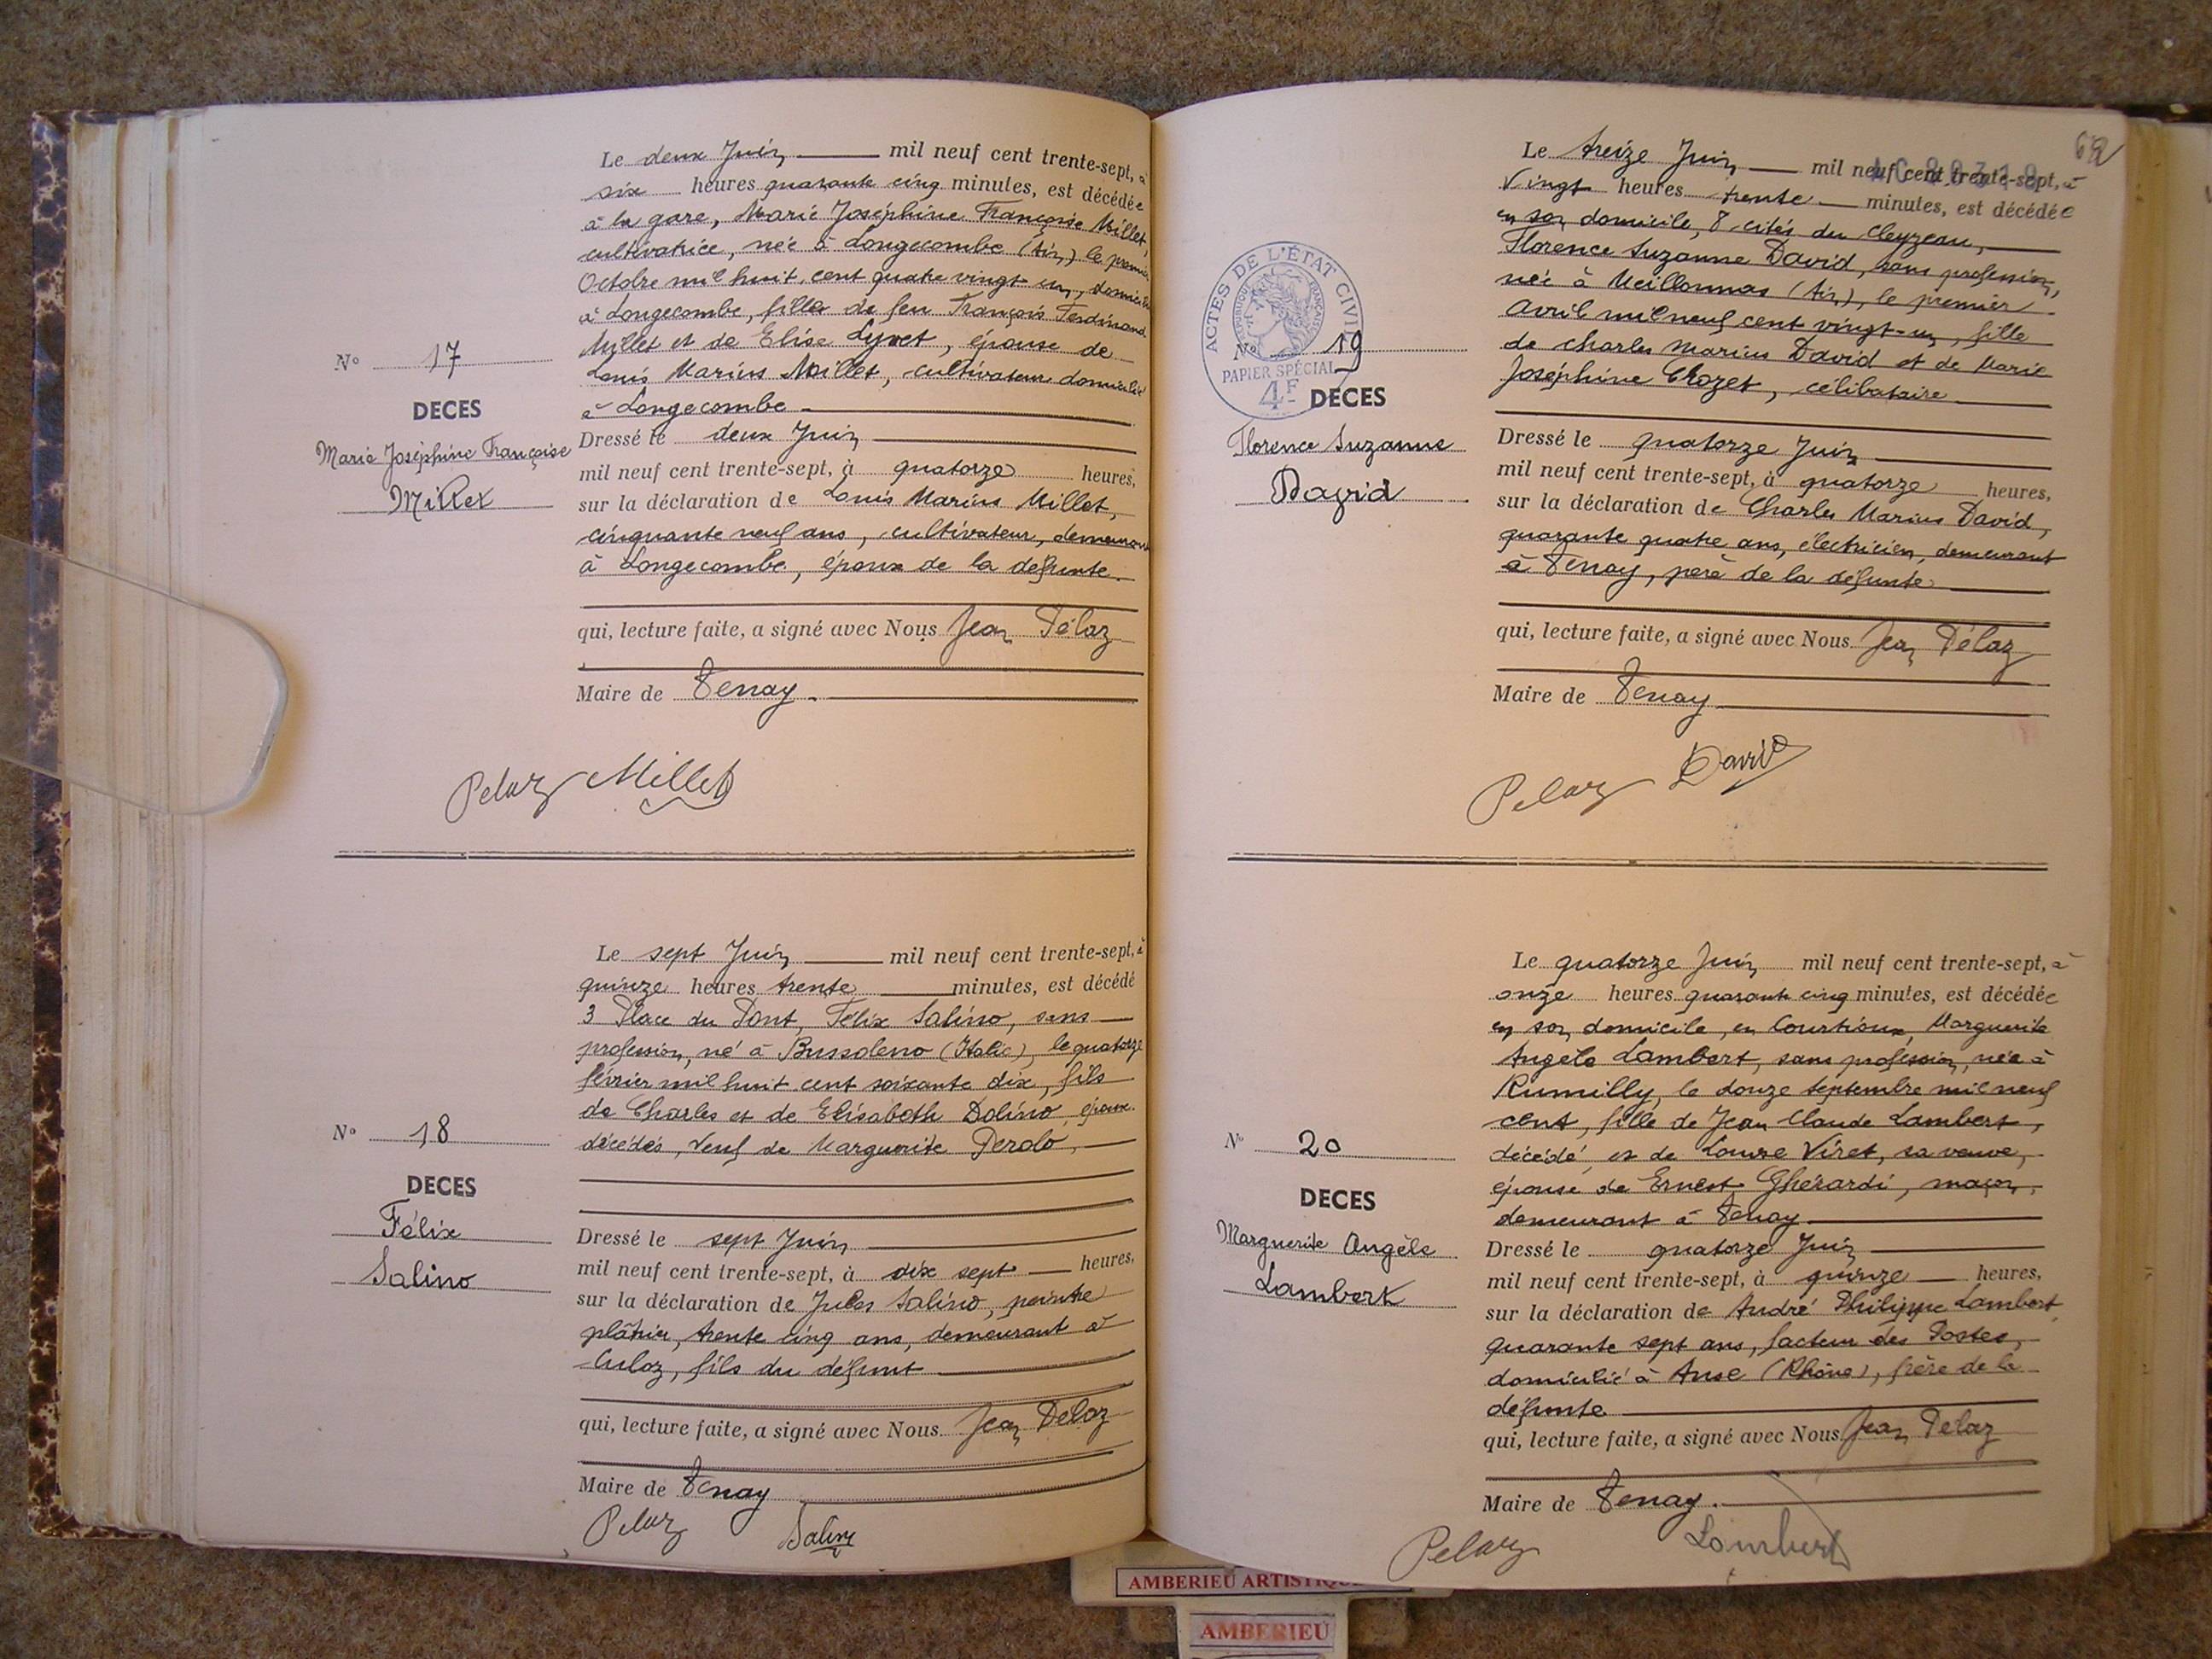 Le deux Juin mil neuf cent trente-sept, à
six heures quarante cinq minutes, est décédée
à la gare, Marie Joséphine Françoise Millet,
cultivatrice, née à Longecombe (Ain) le premier
Octobre mil huit cent quatre vingt un, domiciliée
à Longecombe, fille de feu François Ferdinand
Millet et de Elise Lyvet, épouse de
Louis Marius Millet, cultivateur domicilié
à Longecombe
N° 17
DECES
Marie Joséphine Françoise
Millet
Dressé le deux Juin
mil neuf cent trente-sept, à quatorze heures,
sur la déclaration de Louis Marius Millet,
cinquante neuf ans, cultivateur, demeurant
à Longecombe, époux de la défunte.
qui, lecture faite, a signé avec Nous Jean Pélaz
Maire de Tenay.
Pelaz Millet
Le sept Juin mil neuf cent trente-sept, à
quinze heures trente minutes, est décédé
3 Place du Pont, Félix Salino, sans
profession, né à Bussoleno (Italie), le quatorze
février mil huit cent soixante dix, fils
de Charles et de Elisabeth Dolino, époux
décédés, veuf de Marguerite Perolo,
N° 18
DECES
Félix
Salino
Dressé le sept Juin
mil neuf cent trente-sept, à dix sept heures,
sur la déclaration de Jules Salino, peintre
plâtrier, trente cinq ans, demeurant à
Culoz, fils du défunt
qui, lecture faite, a signé avec Nous Jean Pelaz
Maire de Tenay
Pelaz Salino
62
Le treize Juin mil neuf cent trente-sept, à
Vingt heures trente minutes, est décédée
en son domicile, 8 cités du Cleyzeau,
Florence Suzanne David, sans profession,
née à Meillonnas (Ain), le premier
Avril mil neuf cent vingt-un, fille
de Charles Marius David et de Marie
Joséphine Chozet, célibataire
ACTES DE L'ÉTAT CIVIL
RÉPUBLIQUE FRANÇAISE
PAPIER SPÉCIAL
4F
N° 19
DECES
Florence Suzanne
David
Dressé le quatorze Juin
mil neuf cent trente-sept, à quatorze heures,
sur la déclaration de Charles Marius David,
quarante quatre ans, électricien, demeurant
à Tenay, père de la défunte
qui, lecture faite, a signé avec Nous Jean Pélaz
Maire de Tenay
Pelaz David
Le quatorze Juin mil neuf cent trente-sept, à
onze heures quarante cinq minutes, est décédée
en son domicile, en Courtioux, Marguerite
Angèle Lambert, sans profession, née à
Rumilly, le douze Septembre mil neuf
cent, fille de Jean Claude Lambert,
décédé, et de Louise Viret, sa veuve,
épouse de Ernest Ghérardi, maçon,
demeurant à Tenay
N° 20
DECES
Marguerite Angèle
Lambert
Dressé le quatorze Juin
mil neuf cent trente-sept, à quinze heures,
sur la déclaration de André Philippe Lambert,
quarante sept ans, facteur des Postes,
domicilié à Anse (Rhône), frère de la
défunte
qui, lecture faite, a signé avec Nous Jean Pelaz
Maire de Tenay.
Pelaz Lambert
AMBERIEU ARTISTIQUE
AMBERIEU